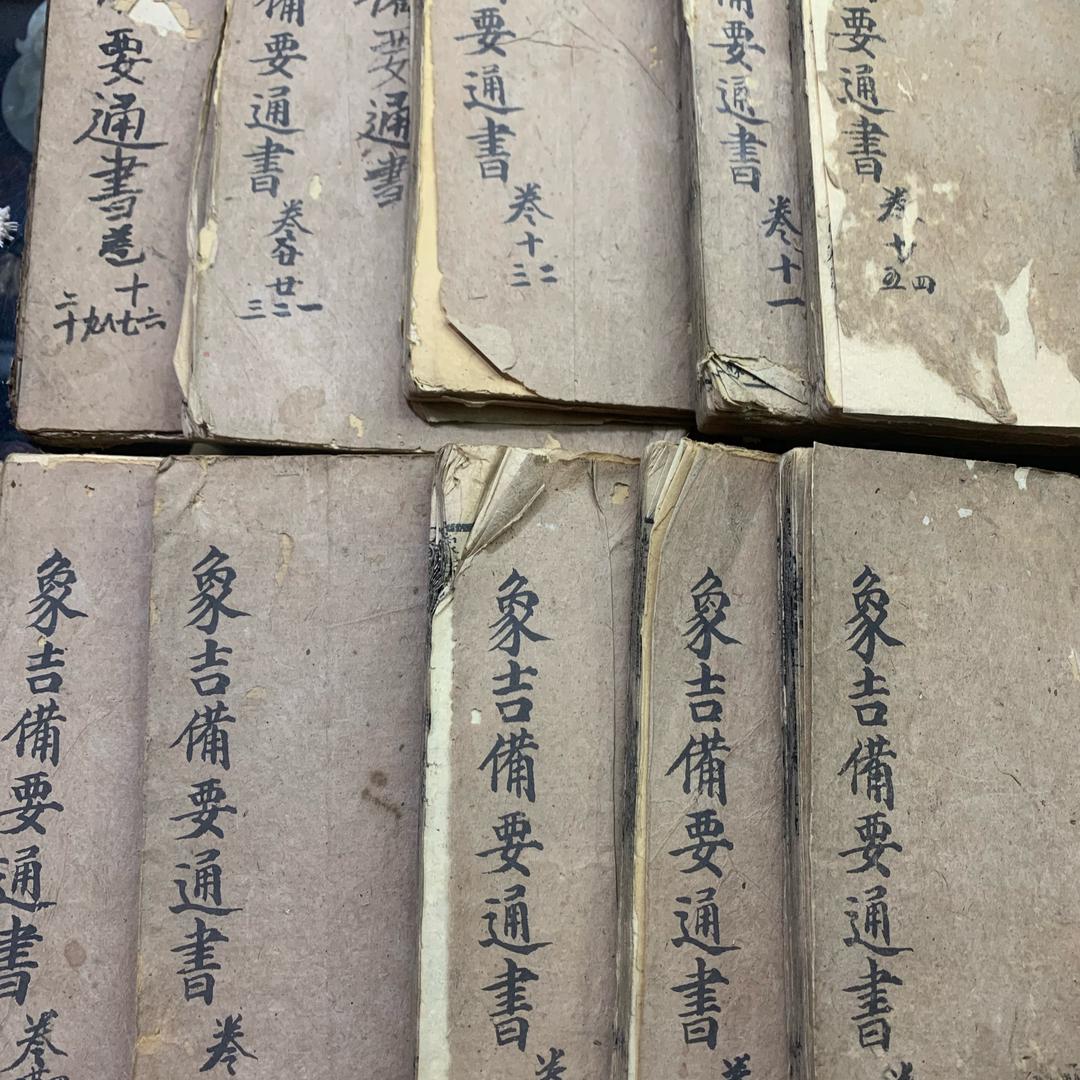 要通書卷十
六七八九二十
備要通書
卷廿
一二三
備要通書
要通書
卷十
二三
備要通書
卷十一
要通書
卷廿
四五
象吉備要通書
卷
象吉備要通書
卷
象吉備要通書
卷
象吉備要通書
卷
象吉備要通書